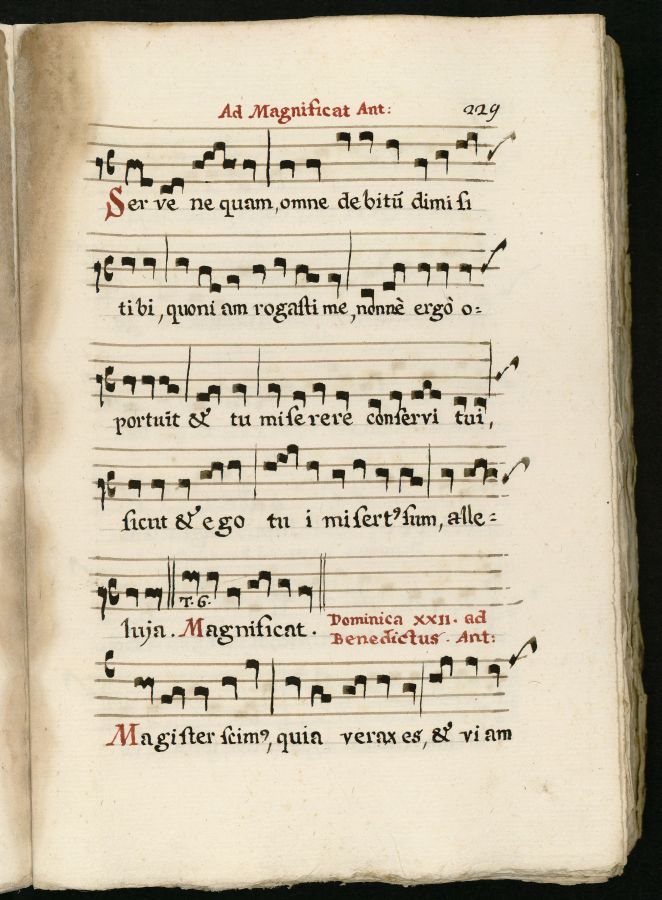 Ad Magnificat Ant: 229
Serve nequam, omne debitū dimisi
tibi, quoniam rogasti me, nonnè ergò o=
portuit & tu miserere conservi tui,
sicut & ego tui misert⁹ sum, alle=
T. G.
luja. Magnificat. Dominica XXII. ad
Benedictus. Ant:
Magister scim⁹, quia verax es, & viam